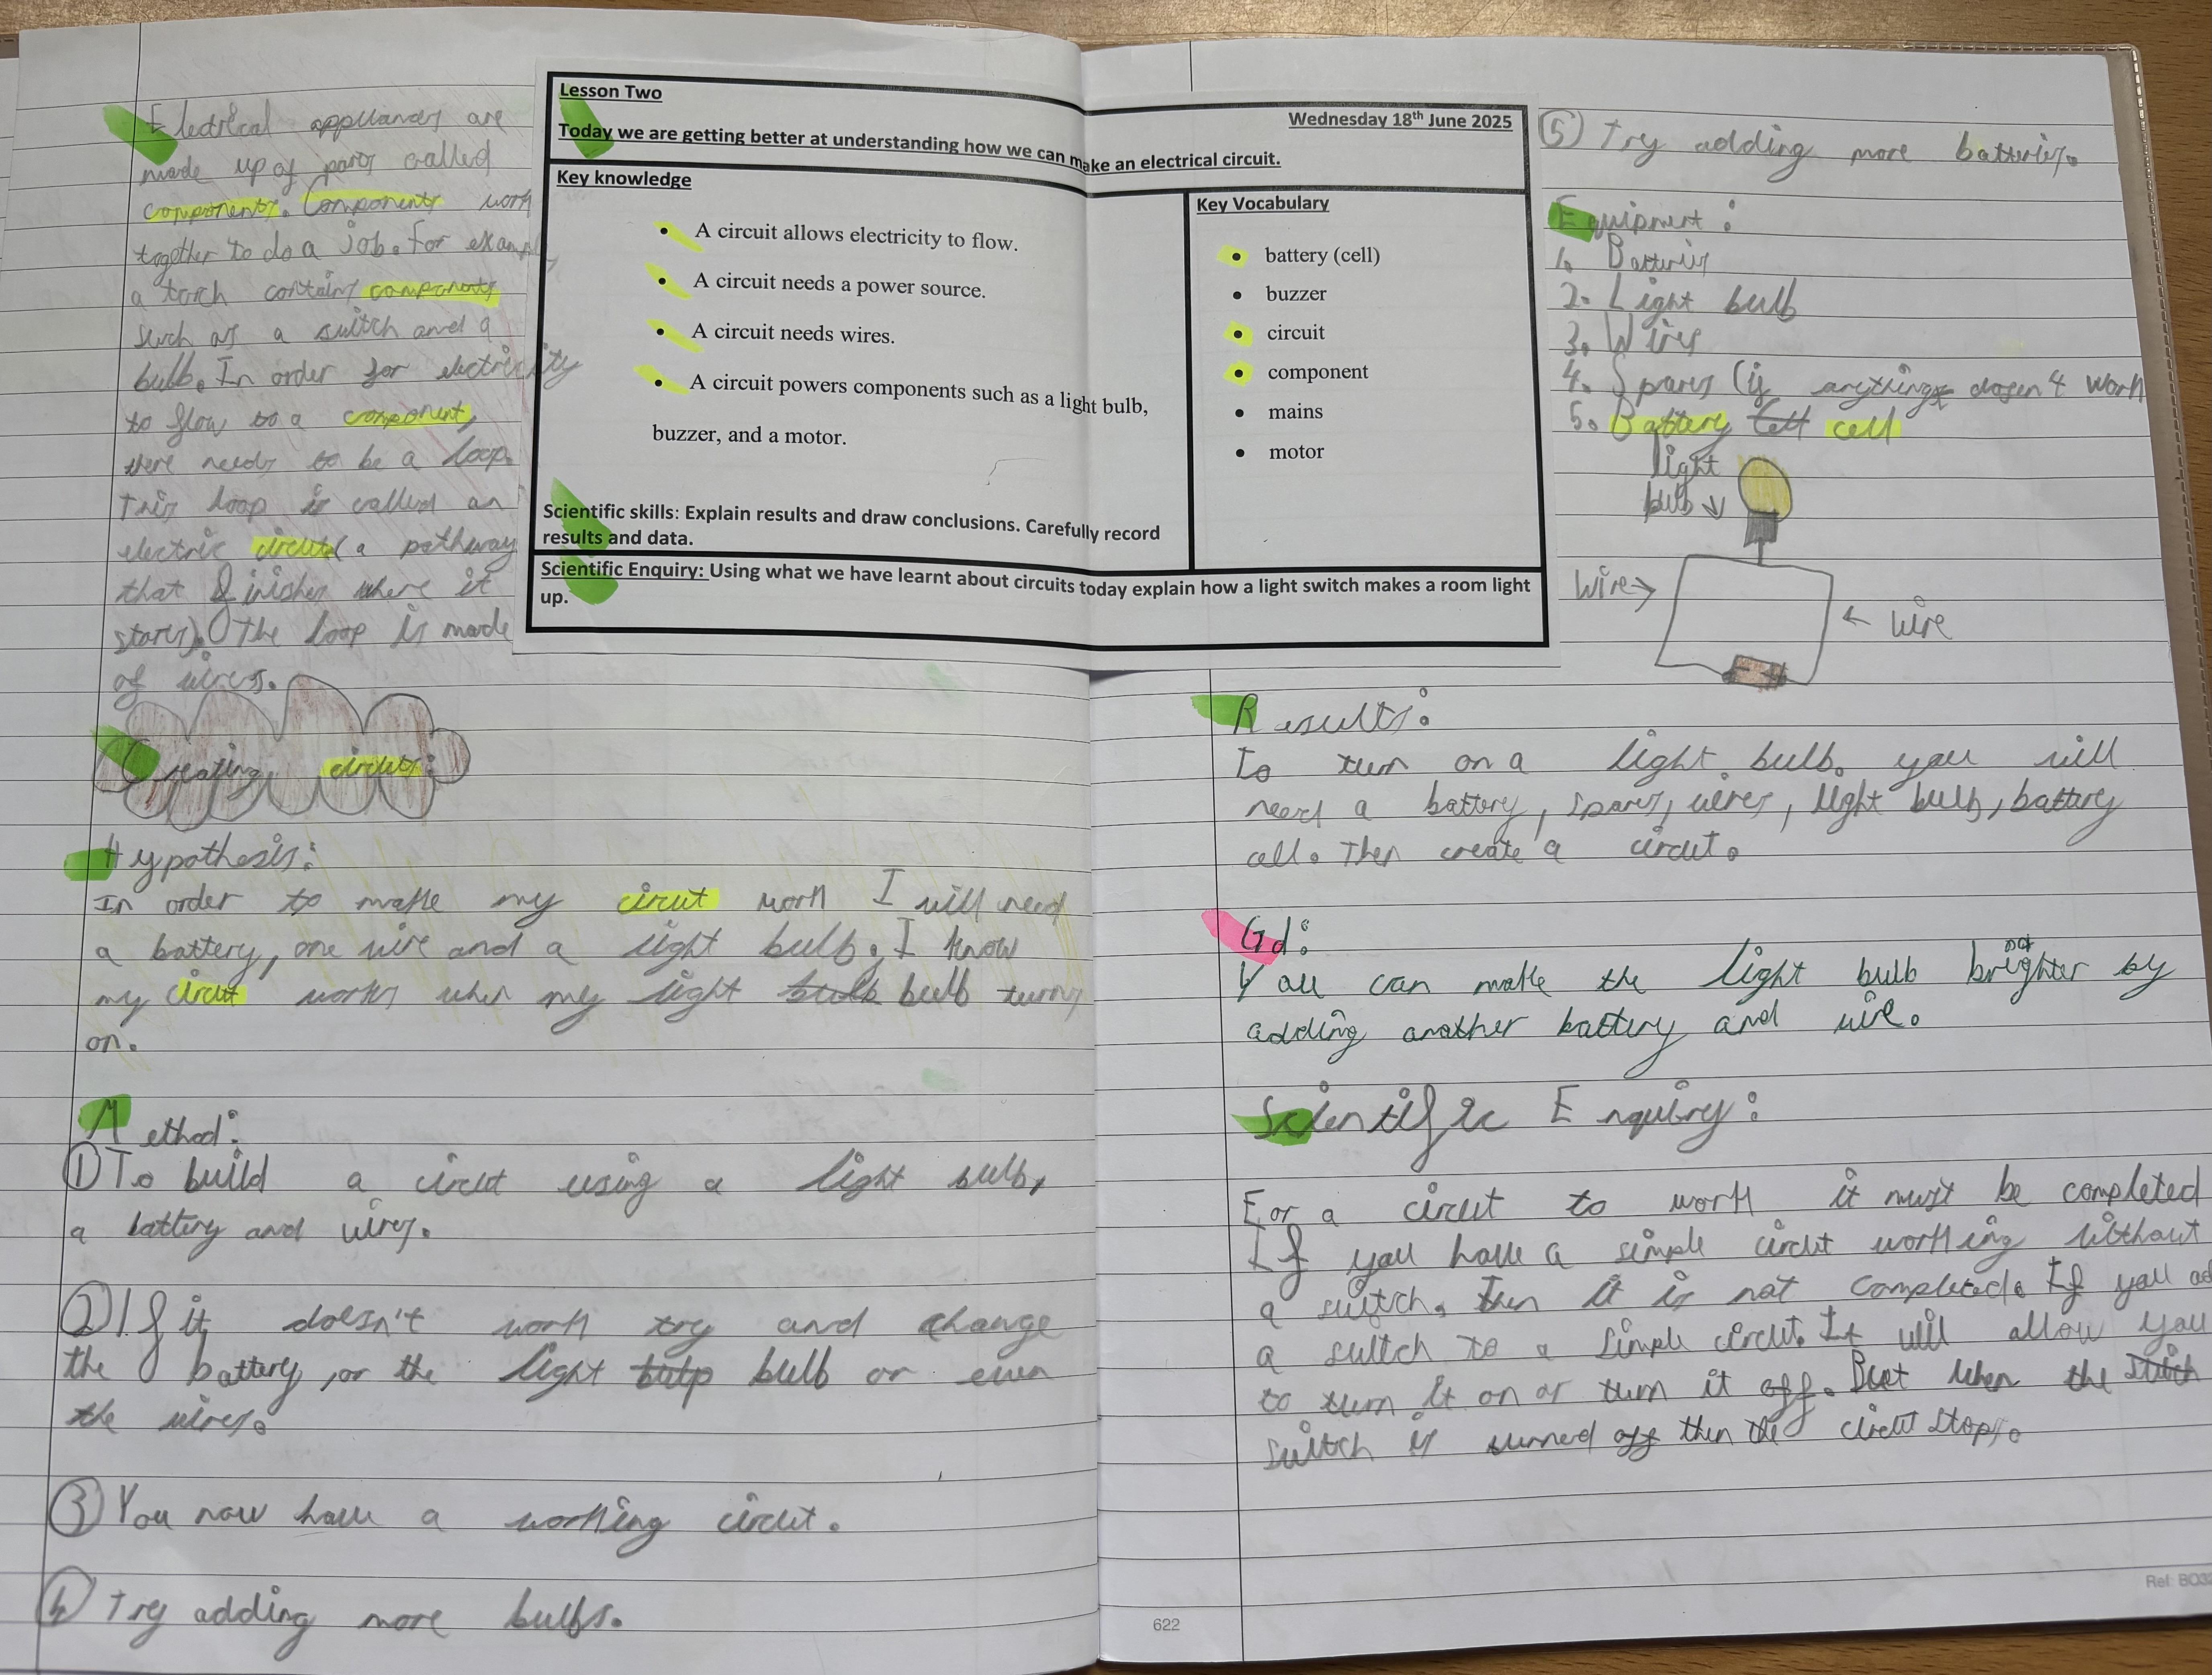 Electrical appliances are
made up of parts called
components. Components work
together to do a job. For example,
a torch contains components
such as a switch and a
bulb. In order for electricity
to flow to a component,
there needs to be a loop.
This loop is called an
electric circuit (a pathway
that finishes where it
starts). The loop is made
of wires.
Creating circuits:
Hypothesis:
In order to make my circut work I will need
a battery, one wire and a light bulb. I know
my circut works when my light bulb turns
on.
Method:
① To build a circut using a light bulb,
a battery and wires.
② If it doesn't work try and change
the battery, or the light bulb or even
the wires.
③ You now have a working circut.
④ Try adding more bulbs.
Lesson Two
Wednesday 18th June 2025
Today we are getting better at understanding how we can make an electrical circuit.
Key knowledge
• A circuit allows electricity to flow.
• A circuit needs a power source.
• A circuit needs wires.
• A circuit powers components such as a light bulb,
buzzer, and a motor.
Scientific skills: Explain results and draw conclusions. Carefully record
results and data.
Key Vocabulary
• battery (cell)
• buzzer
• circuit
• component
• mains
• motor
Scientific Enquiry: Using what we have learnt about circuits today explain how a light switch makes a room light
up.
⑤ Try adding more batteries.
Equipment:
1. Batteries
2. Light bulb
3. Wires
4. Spares (if anything dosen't work
5. Battery cell
light
bulb ↓
Wire →
← Wire
Results:
To turn on a light bulb. you will
need a battery, spares, wires, light bulb, battery
cell. Then create a circut.
Gd:
You can make the light bulb brighter by
adding another battery and wire.
Scientific Enquiry:
For a circut to work it must be completed
If you have a simple circut working without
a switch. Then it is not completed. If you ad
a switch to a simple circut. It will allow you
to turn it on or turn it off. But when the
switch is turned off then the circut stops.
622
Ref: BO32